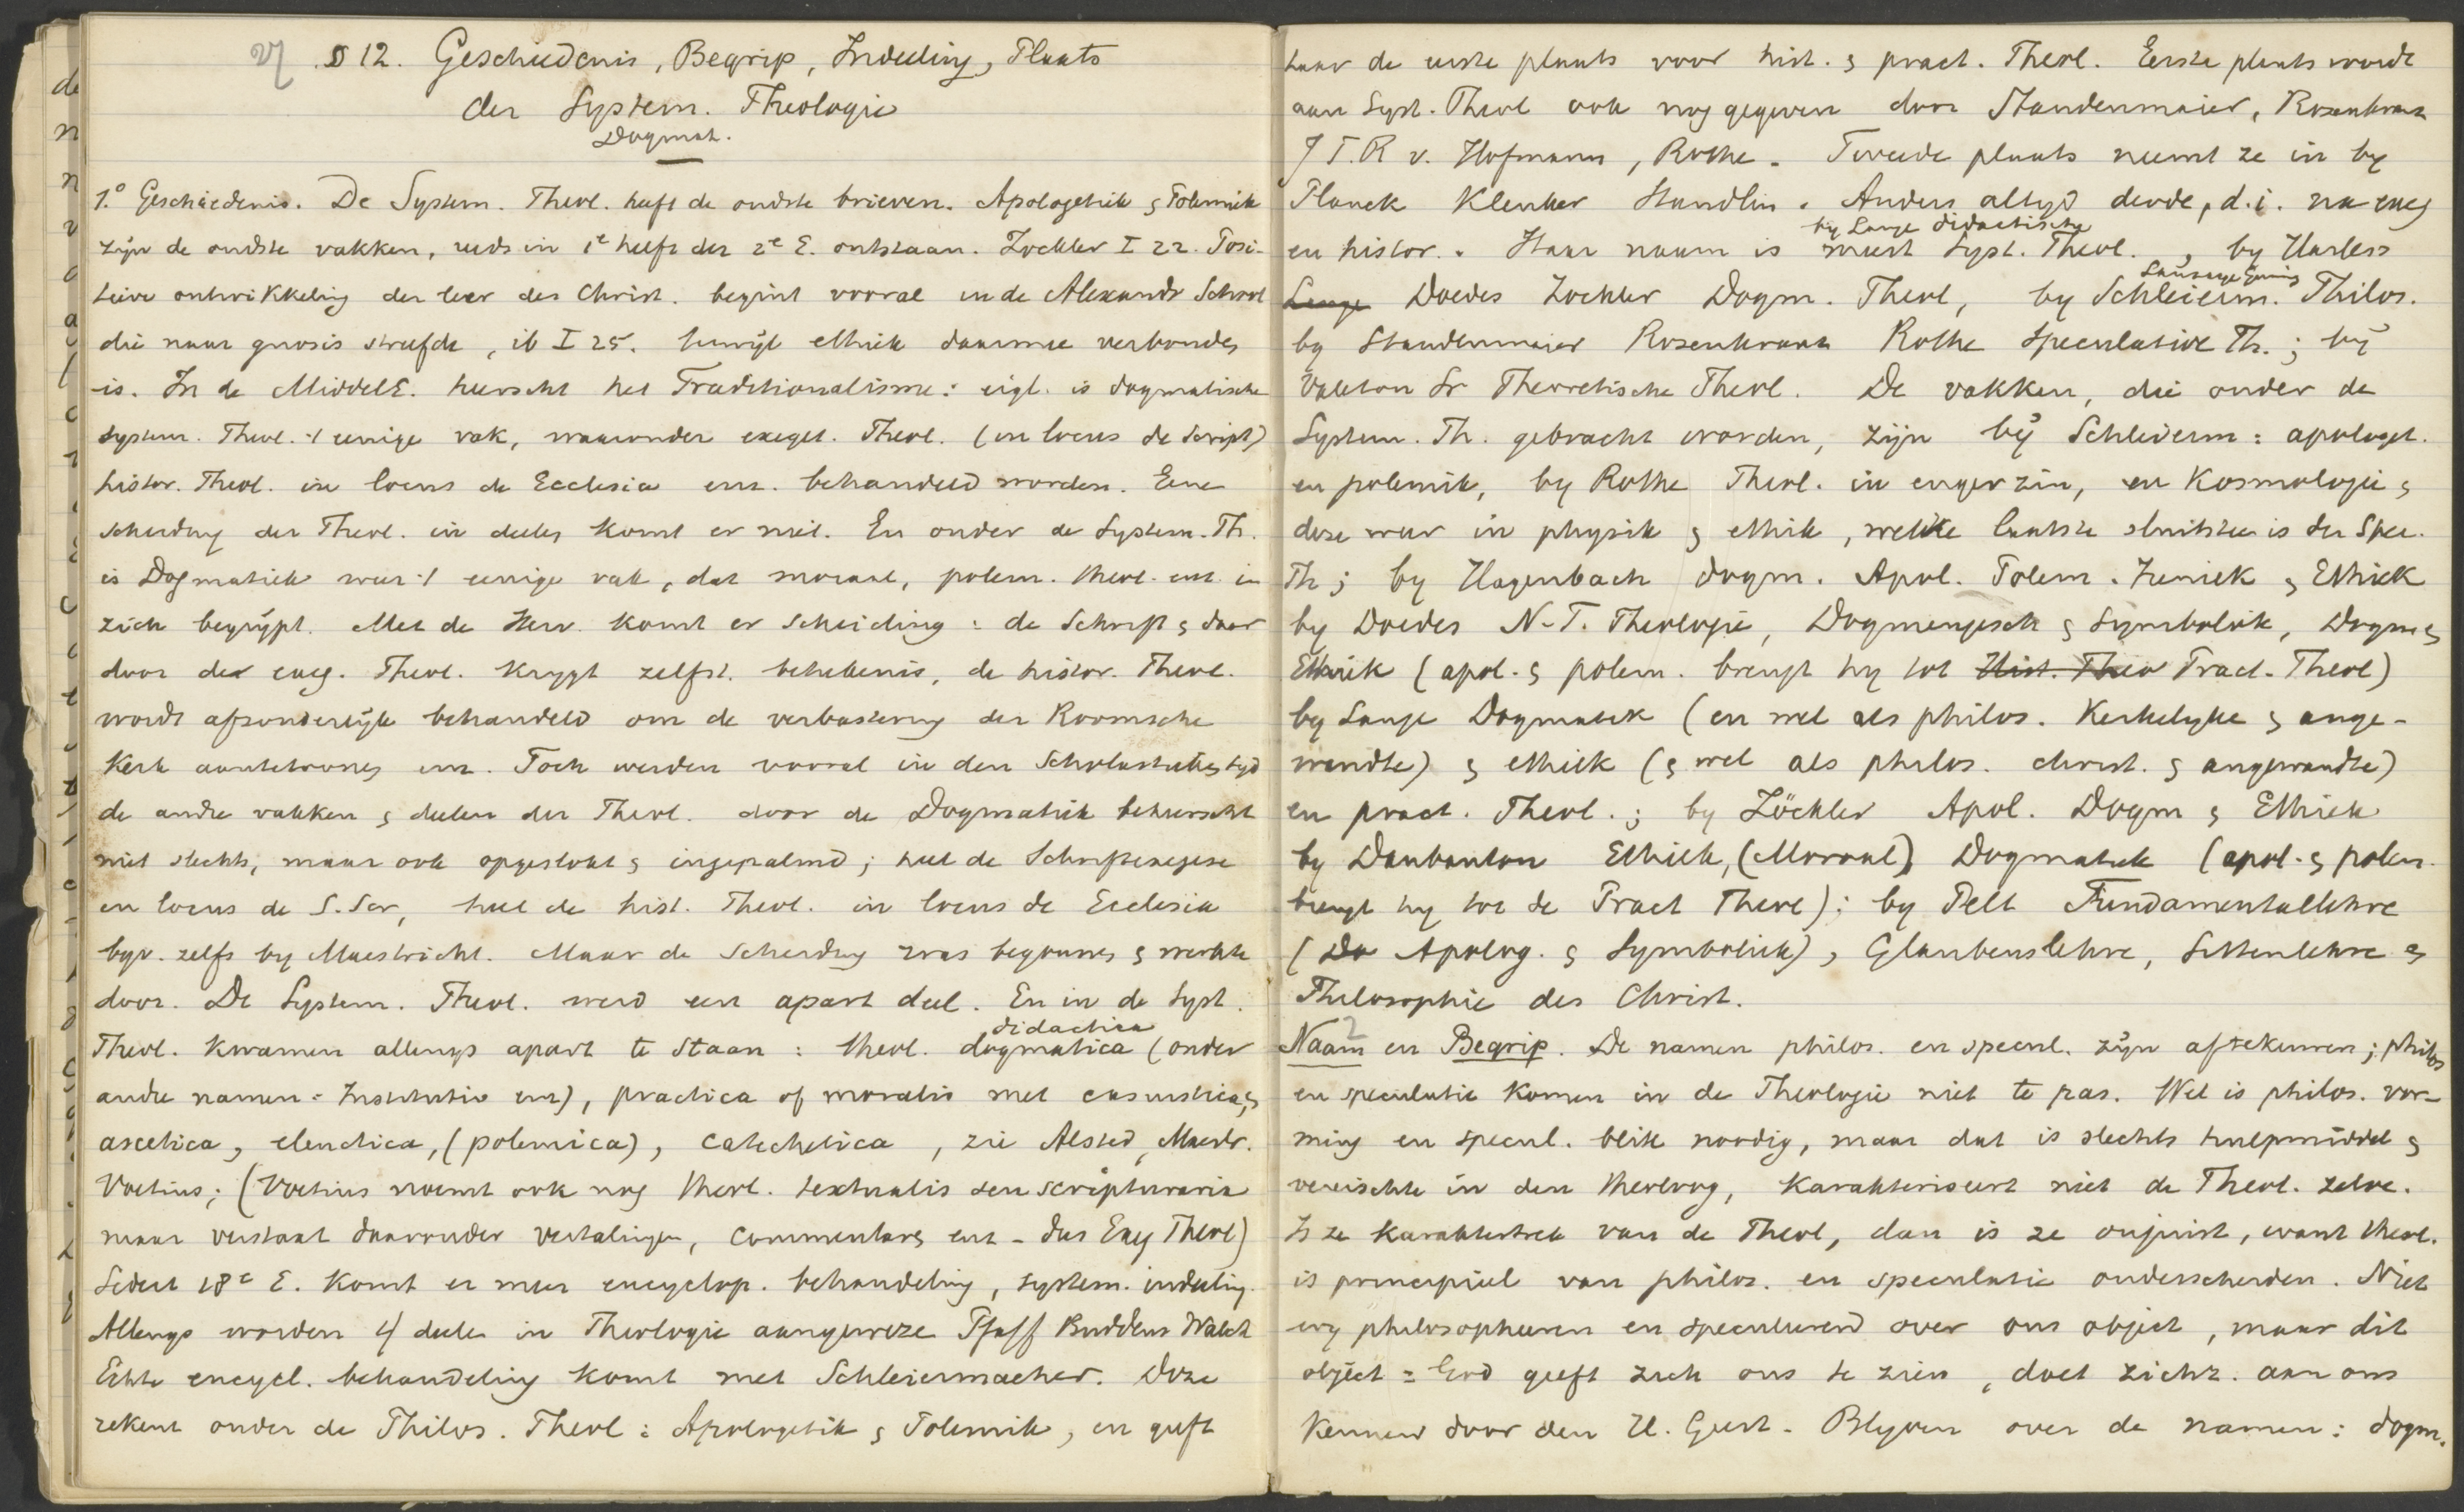 § 12. Geschiedenis, Begrip, Indeeling, Plaats
der System. Theologie
Dogmat.
1.° Geschiedenis. De System. Theol. heeft de oudste brieven. Apologetiek & Polemiek
zijn de oudste vakken, reeds in 1e helft der 2e E. ontstaan. Zockler I 22. Posi-
tieve ontwikkeling der leer des Christ. begint vooral in de Alexandr School
die naar gnosis streefde, ib I 25. terwijl ethiek daarmee verbonden
is. In de MiddelE. heerscht het Traditionalisme: eigl. is dogmatische
system. Theol. 't eenige vak, waaronder exeget. Theol. (in locus de Script)
histor. Theol. in locus de Ecclesia enz. behandeld worden. Eene
scheiding der Theol. in deelen komt er niet. En onder de System. Th.
is Dogmatiek weer 't eenige vak, dat moraal, polem. theol. enz. in
zich begrijpt. Met de Herv. komt er scheiding: de Schrift & daar
door de exeg. Theol. krygt zelfst. beteekenis, de histor. Theol.
wordt afzonderlijk behandeld om de verbastering der Roomsche
Kerk aantetoonen enz. Toch werden vooral in den Scholastieken tyd
de andre vakken & deelen der Theol. door de Dogmatiek beheerscht
niet slechts, maar ook opgeslokt & ingepalmd; heel de Schriftexegese
in locus de S. Scr, heel de hist. Theol. in locus de Ecclesia
bijv. zelfs by Maestricht. Maar de scheiding was begonnen & werkte
door. De System. Theol. werd een apart deel. En in de Syst.
didactica
Theol. kwamen allengs apart te staan: theol. dogmatica (onder
andre namen: Institutio enz), practica of moralis met casuistica &
ascetica, elenctica, (polemica), catechetica, zie Alsted, Maestr.
Voetius; (Voetius noemt ook nog theol. textualis seu scripturaria
maar verstaat daaronder vertalingen, commentare enz - dus Exeg Theol)
Sedert 18e E. komt er meer encyclop. behandeling, system. indeeling.
Allengs worden 4 deelen in Theologie aangewezen Pfaff Buddeus Walch
Echte encycl. behandeling komt met Schleiermacher. Deze
rekent onder de Philos. Theol: Apologetik & Polemik, en geeft
haar de eerste plaats voor hist. & pract. Theol. Eerste plaats wordt
aan Syst. Theol ook nog gegeven door Staudenmaier, Rosenkranz
J T. R v. Hofmann, Rothe. Tweede plaats neemt ze in by
Planck Kleuker Staudlin. Anders altijd derde, d.i. na exeg
by Lange didactische
en histor. Haar naam is meest Syst. Theol. , by Harless
Doedes Zockler Dogm. Theol, by Schleierm. Philos.
by Staudenmaier Rosenkranz Rothe Speculative Th.; bij
Valeton Sr Theoretische Theol. De vakken, die onder de
System. Th. gebracht worden, zijn bij Schleierm: apologet.
en polemik, by Rothe Theol. in enger zin, en Kosmologie &
deze weer in physik & ethik, welke laatste sluitsteen is der Spec.
Th; by Hagenbach dogm. Apol. Polem. Ireniek & Ethiek
by Doedes N.T. Theologie, Dogmengesch & Symboliek, Dogm &
Ethiek (apol. & polem. brengt hy tot Hist. Theo Pract. Theol)
by Lange Dogmatik (en wel als philos. Kerkelyke & ange-
wendte) & ethiek (& wel als philos. christ. & angewandte)
en pract. Theol.; by Zöckler Apol. Dogm & Ethiek
by Daubanton Ethiek, (Moraal) Dogmatiek (apol. & polem.
brengt hy tot de Pract Theol); by Pelt Fundamentallehre
(Do Apolog. & Symboliek), Glaubenslehre, Sittenlehre &
Philosophie des Christ.
2 Naam en Begrip. De namen philos. en specul. zijn aftekeuren; philos
en speculatie komen in de Theologie niet te pas. Wel is philos. vor-
ming en specul. blik noodig, maar dat is slechts hulpmiddel &
vereischte in den theoloog, karakteriseert niet de Theol. zelve.
Is ze karaktertrek van de Theol, dan is ze onjuist, want theol.
is principieel van philos. en speculatie onderscheiden. Niet
wij philosopheeren en speculeerend over ons object, maar dit
object = God geeft zich ons te zien, doet zichz. aan ons
kennen door den H. Geest. Blyven over de namen: dogm.